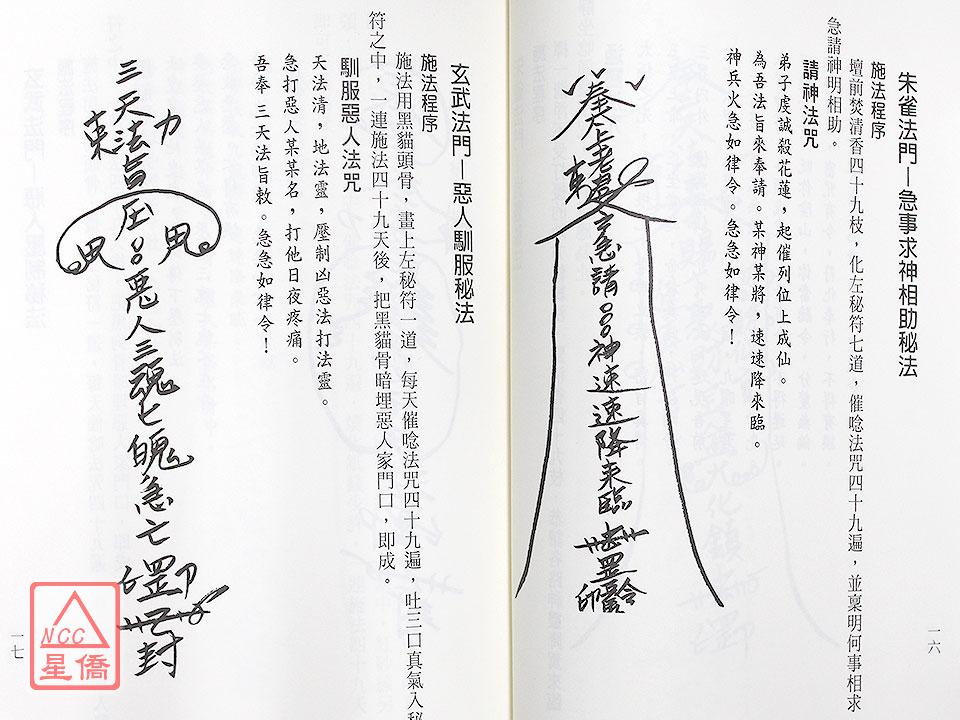 朱雀法門—急事求神相助秘法
施法程序
壇前焚清香四十九枝，化左秘符七道，催唸法咒四十九遍，並稟明何事相求
急請神明相助。
請神法咒
弟子虔誠殺花蓮，起催列位上成仙。
為吾法旨來奉請。某神某將，速速降來臨。
神兵火急如律令。急急如律令！
急請
神速速降來臨
一六
玄武法門—惡人馴服秘法
施法程序
施法用黑貓頭骨，畫上左秘符一道，每天催唸法咒四十九遍，吐三口真氣入秘
符之中，一連施法四十九天後，把黑貓骨暗埋惡人家門口，即成。
馴服惡人法咒
天法清，地法靈，壓制凶惡法打法靈。
急打惡人某某名，打他日夜疼痛。
吾奉 三天法旨敕。急急如律令！
三天法旨
惡人三魂七魄急亡
封
一七
NCC
星僑